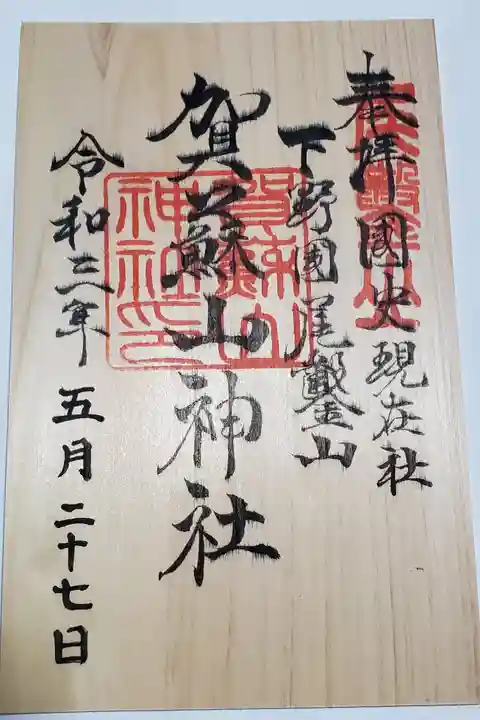 奉拝 國史現在社
下野國尾鑿山
賀蘇山神社
令和三年 五月二十七日
賀蘇山
神社印